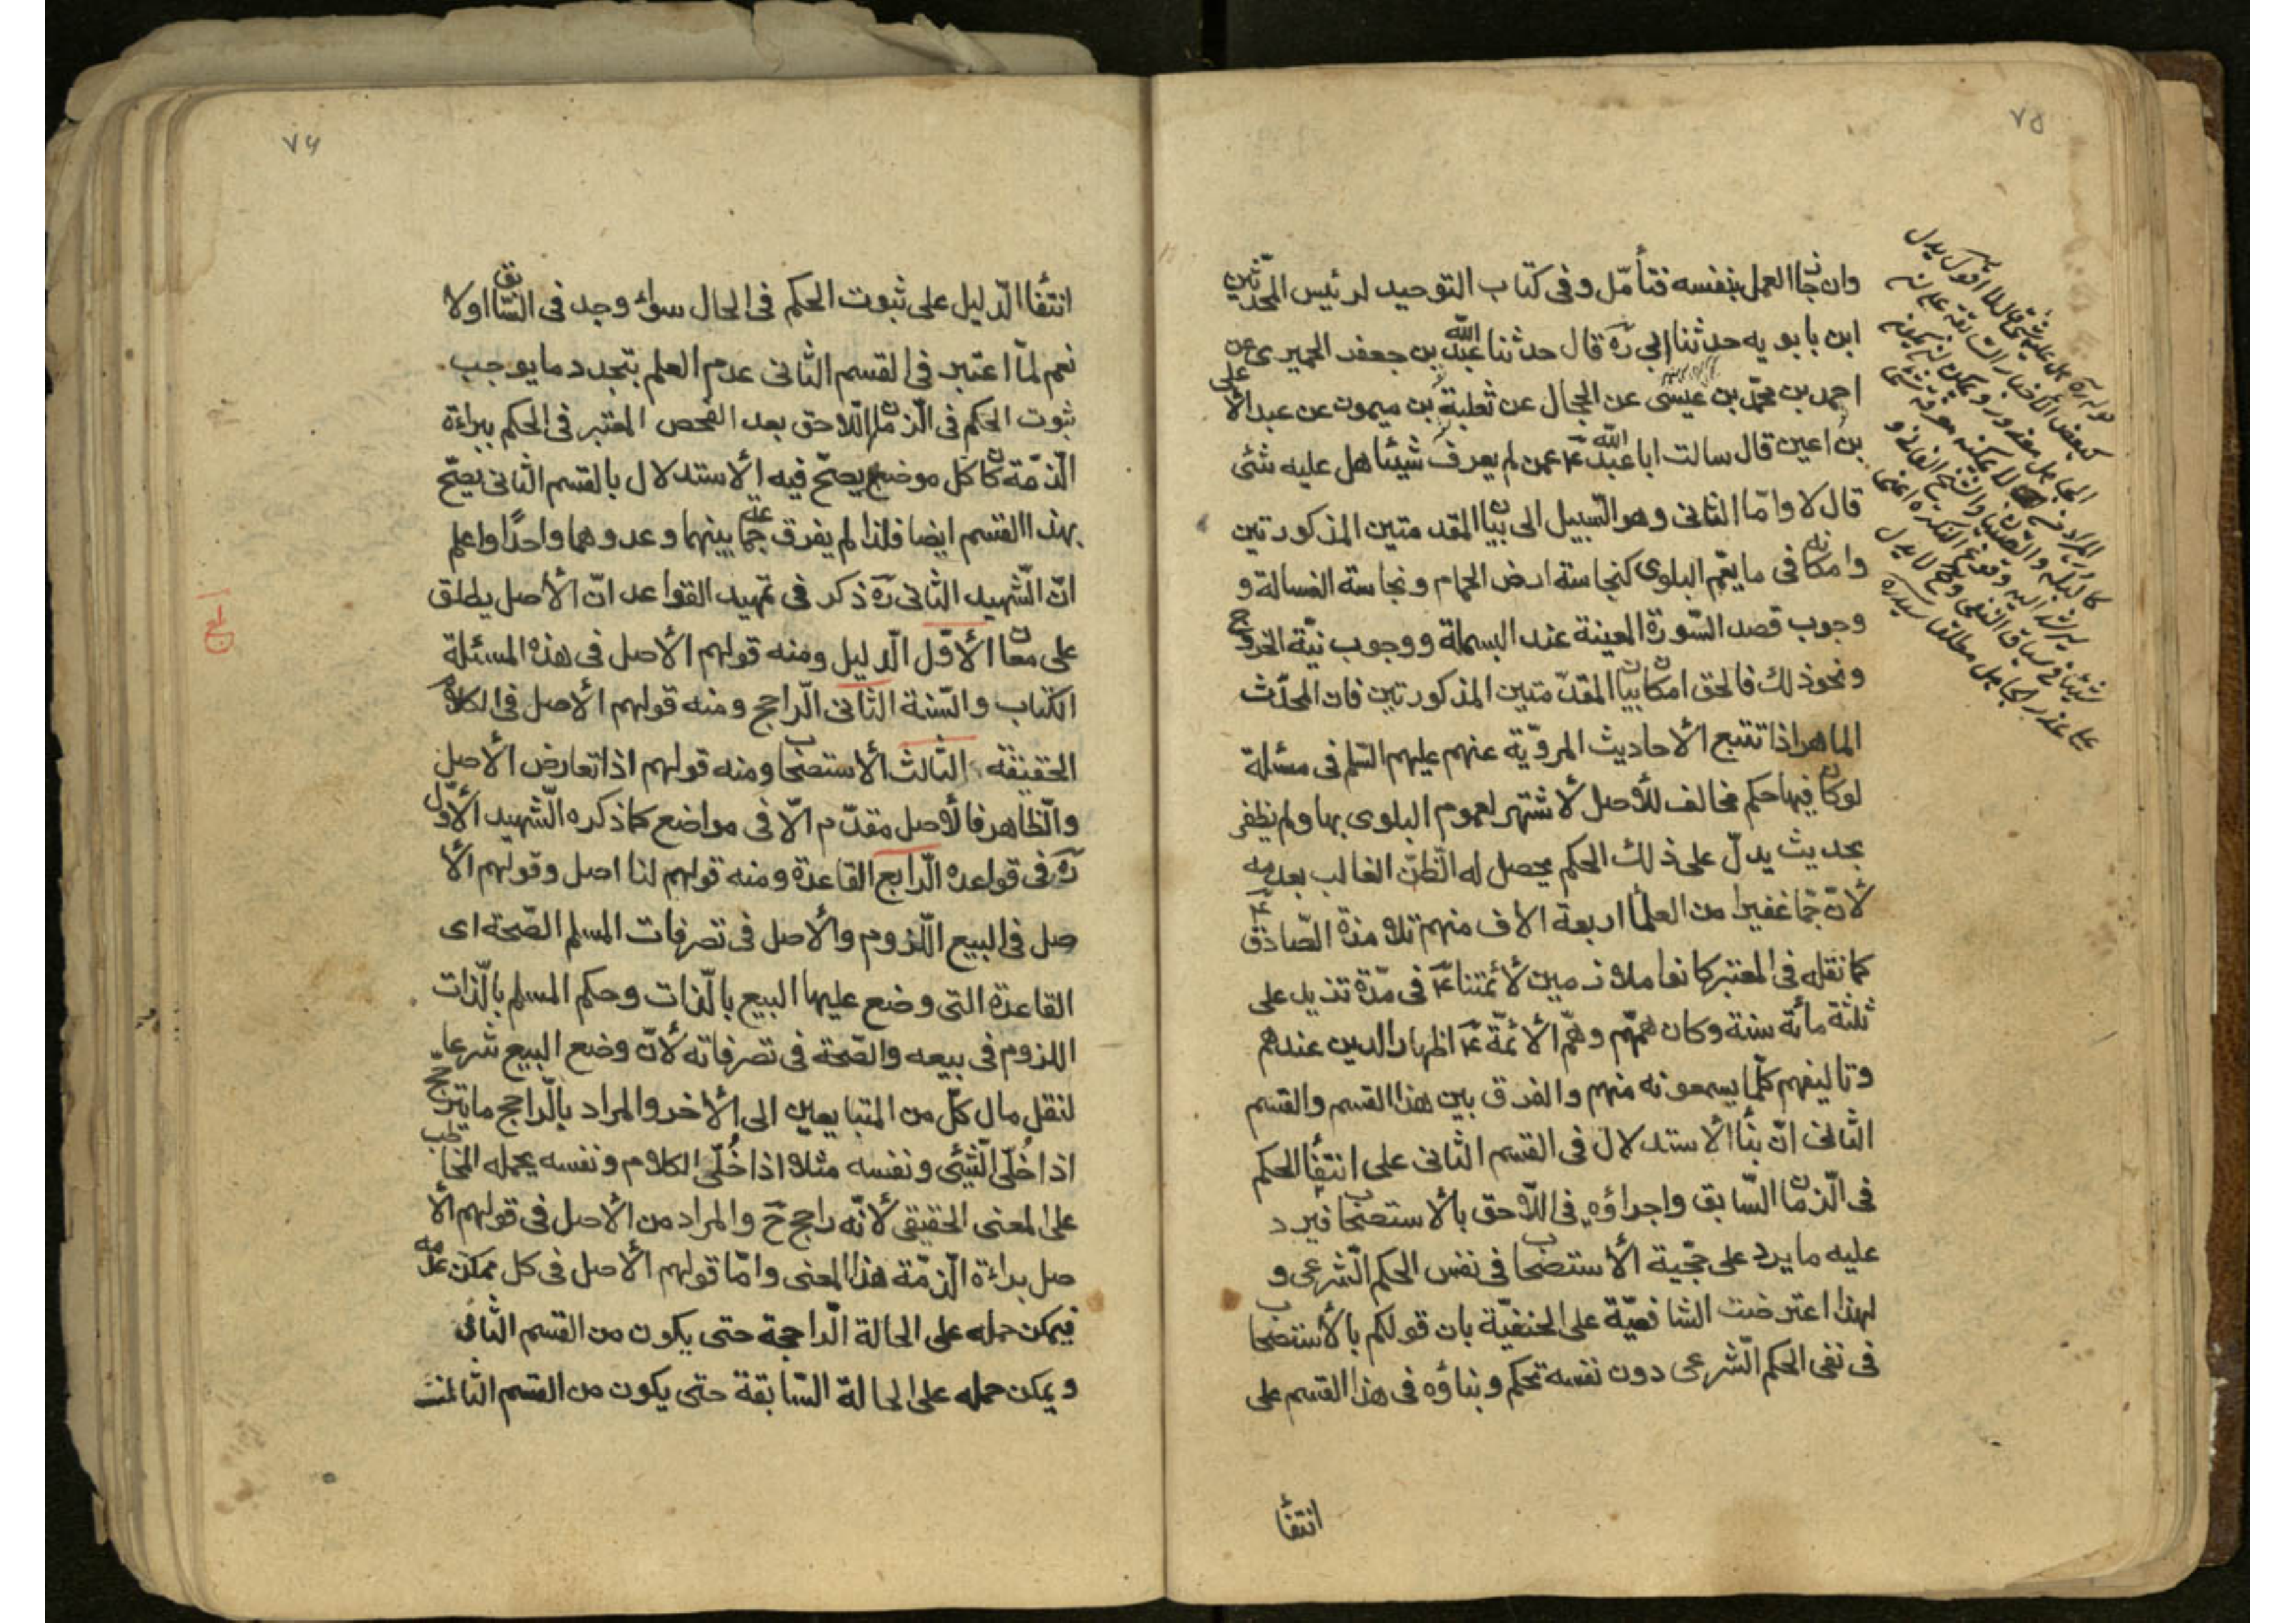 ٧٥
وان جاز العمل بنفسه فتأمّل وفى كتاب التوحيد لرئيس المحدّثين
ابن بابويه حدثنا ابي ره قال حدثنا عبد الله بن جعفر الحميرى عن
احمد بن محمّد بن عيسى عن الحجال عن ثعلبة بن ميمون عن عبد الأعلى
بن اعين قال سالت ابا عبد الله ع عمن لم يعرف شيئا هل عليه شئى
قال لا وامّا الثانى وهو السّبيل الى بيان المقدمتين المذكورتين
وامكانه فى ما يعّم البلوى كنجاسة ارض الحمام ونجاسة الغسالة و
وجوب قصد السّورة المعينة عند البسملة ووجوب نيّة الخروج
ونحو ذلك فالحق امكان بيان المقدّمتين المذكورتين فان المحدّث
الماهر اذا تتبع الأحاديث المرويّة عنهم عليهم السّلم فى مسئلة
لوكان فيها حكم مخالف للأصل لاشتهر لعموم البلوى بها ولم يظفر
بحديث يدلّ على ذلك الحكم يحصل له الظّنّ الغالب بعدمه
لانّ جمّا غفيرا من العلمأ اربعة الاف منهم تلامذة الصّادق ع
كما نقله فى المعتبر كانوا ملازمين لأئمّتنا ع فى مدّة تزيد على
ثلثة مأئة سنة وكان همّهم وهمّ الأئمّة ع اظهار الدين عندهم
وتاليفهم كلّما يسمعونه منهم والفرق بين هذا القسم والقسم
الثانى انّ بنأ الأستدلال فى القسم الثانى على انتفأ الحكم
فى الّزمان السّابق واجراؤه فى اللّاحق بالأستصحاب فيرد
عليه ما يرد على حجّية الأستصحاب فى نفس الحكم الشّرعى و
لهذا اعترضت الشافعيّة على الحنفيّة بان قولكم بالأستصحاب
فى نفى الحكم الشّرعى دون نفسه تحكم وبناؤه فى هذا القسم على
انتفأ
٧٦
انتفأ الدّليل على ثبوت الحكم فى الحال سوأ وجد فى السّابق اولا
نعم لمّا اعتبر فى القسم الثانى عدم العلم بتجدد ما يوجب
ثبوت الحكم فى الّزمان اللّاحق بعد الفحص المعتبر فى الحكم ببراءة
الذمّة كان كل موضع يصحّ فيه الأستدلال بالقسم الثانى يصحّ
بهذا القسم ايضا فلذا لم يفرق جماعة بينهما وعدوهما واحدًا واعلم
انّ الشّهيد الثانى ره ذكر فى تمهيد القواعد انّ الأصل يطلق
على معان الأوّل الدّليل ومنه قولهم الأصل فى هذه المسئلة
الكتاب والسّنة الثانى الرّاجح ومنه قولهم الأصل فى الكلام
الحقيقة الثّالث الأستصحاب ومنه قولهم اذا تعارض الأصل
والظّاهر فالأصل مقدّم الّا فى مواضع كما ذكره الشّهيد الأوّل
ره فى قواعده الرّابع القاعدة ومنه قولهم لنا اصل وقولهم الأ
صل فى البيع اللّزوم والأصل فى تصرفات المسلم الصّحة اى
القاعدة التى وضع عليها البيع بالّذات وحكم المسلم بالّذات
اللزوم فى بيعه والصّحة فى تصرفاته لأنّ وضع البيع شرعا
لنقل مال كلّ من المتبايعين الى الأخر والمراد بالرّاجح ما يترجّح
اذا خُلّى الشّيئى ونفسه مثلا اذا خُلّى الكلام ونفسه يحمله المخاطب
على المعنى الحقيقى لأنّه راجح ح والمراد من الأصل فى قولهم الأ
صل براءة الّذمّة هذا المعنى وامّا قولهم الأصل فى كل ممكن عدمه
فيمكن حمله على الحالة الرّاجحة حتى يكون من القسم الثانى
ويمكن حمله على الحالة السّابقة حتى يكون من القسم الثالث